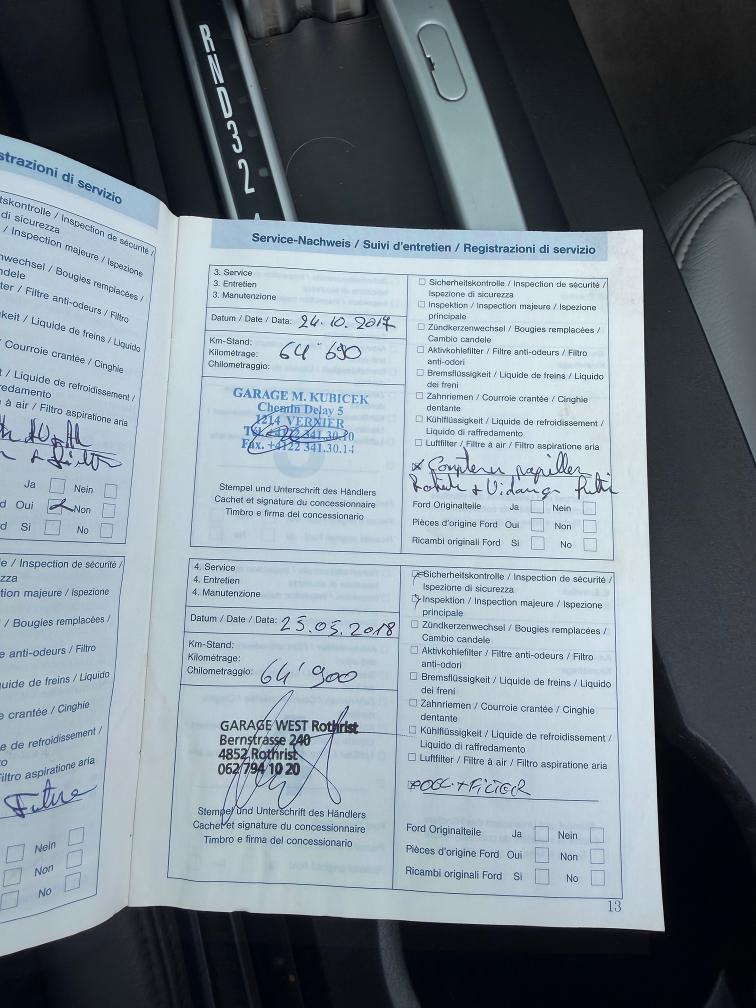 R
N
D
3
2
strazioni di servizio
tskontrolle / Inspection de sécurité /
di sicurezza
/ Inspection majeure / Ispezione
wechsel / Bougies remplacées /
ndele
ter / Filtre anti-odeurs / Filtro
keit / Liquide de freins / Liquido
/ Courroie crantée / Cinghie
t / Liquide de refroidissement /
redamento
à air / Filtro aspiratione aria
Ja Nein
d Oui Non
d Si No
e / Inspection de sécurité /
zza
tion majeure / Ispezione
/ Bougies remplacées /
e anti-odeurs / Filtro
uide de freins / Liquido
e crantée / Cinghie
e de refroidissement /
to
iltro aspiratione aria
Filtre
Nein
Non
No
Service-Nachweis / Suivi d'entretien / Registrazioni di servizio
3. Service
3. Entretien
3. Manutenzione
Datum / Date / Data: 24.10.2017
Km-Stand:
Kilométrage: 64'690
Chilometraggio:
GARAGE M. KUBICEK
Chemin Delay 5
1214 VERNIER
Tél. +4122 341.30.10
Fax. +4122 341.30.14
Stempel und Unterschrift des Händlers
Cachet et signature du concessionnaire
Timbro e firma del concessionario
Sicherheitskontrolle / Inspection de sécurité /
Ispezione di sicurezza
Inspektion / Inspection majeure / Ispezione
principale
Zündkerzenwechsel / Bougies remplacées /
Cambio candele
Aktivkohlefilter / Filtre anti-odeurs / Filtro
anti-odori
Bremsflüssigkeit / Liquide de freins / Liquido
dei freni
Zahnriemen / Courroie crantée / Cinghie
dentante
Kühlflüssigkeit / Liquide de refroidissement /
Liquido di raffredamento
Luftfilter / Filtre à air / Filtro aspiratione aria
+ Vidange
Ford Originalteile Ja Nein
Pièces d'origine Ford Oui Non
Ricambi originali Ford Si No
4. Service
4. Entretien
4. Manutenzione
Datum / Date / Data: 25.05.2018
Km-Stand:
Kilométrage:
Chilometraggio: 64'900
GARAGE WEST Rothrist
Bernstrasse 240
4852 Rothrist
062/794 10 20
Stempel und Unterschrift des Händlers
Cachet et signature du concessionnaire
Timbro e firma del concessionario
Sicherheitskontrolle / Inspection de sécurité /
Ispezione di sicurezza
Inspektion / Inspection majeure / Ispezione
principale
Zündkerzenwechsel / Bougies remplacées /
Cambio candele
Aktivkohlefilter / Filtre anti-odeurs / Filtro
anti-odori
Bremsflüssigkeit / Liquide de freins / Liquido
dei freni
Zahnriemen / Courroie crantée / Cinghie
dentante
Kühlflüssigkeit / Liquide de refroidissement /
Liquido di raffredamento
Luftfilter / Filtre à air / Filtro aspiratione aria
OEL + FILTER
Ford Originalteile Ja Nein
Pièces d'origine Ford Oui Non
Ricambi originali Ford Si No
13